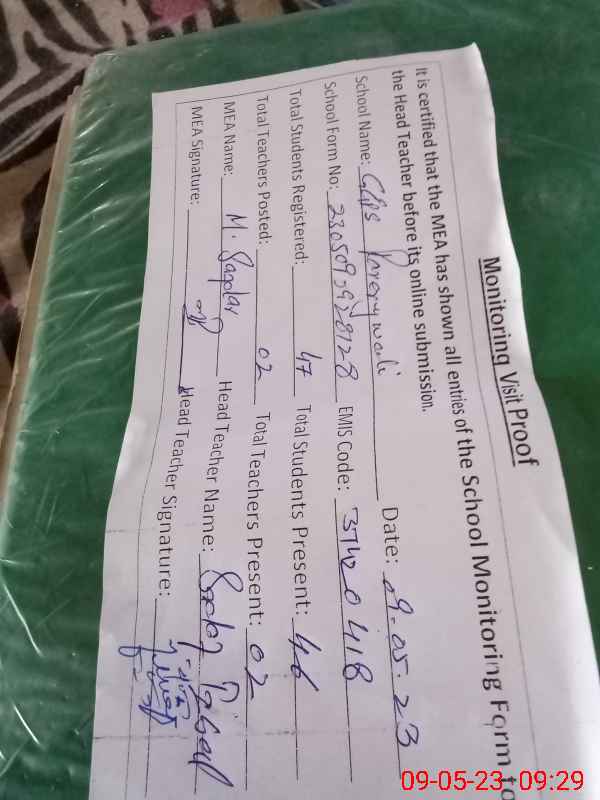 Monitoring Visit Proof
It is certified that the MEA has shown all entries of the School Monitoring Form to
the Head Teacher before its online submission.
School Name: GGPS Date: 09-05-23
School Form No: EMIS Code: 37420418
Total Students Registered: 47 Total Students Present: 46
Total Teachers Posted: 02 Total Teachers Present: 02
MEA Name: M. Head Teacher Name:
MEA Signature: Head Teacher Signature:
09-05-23 09:29